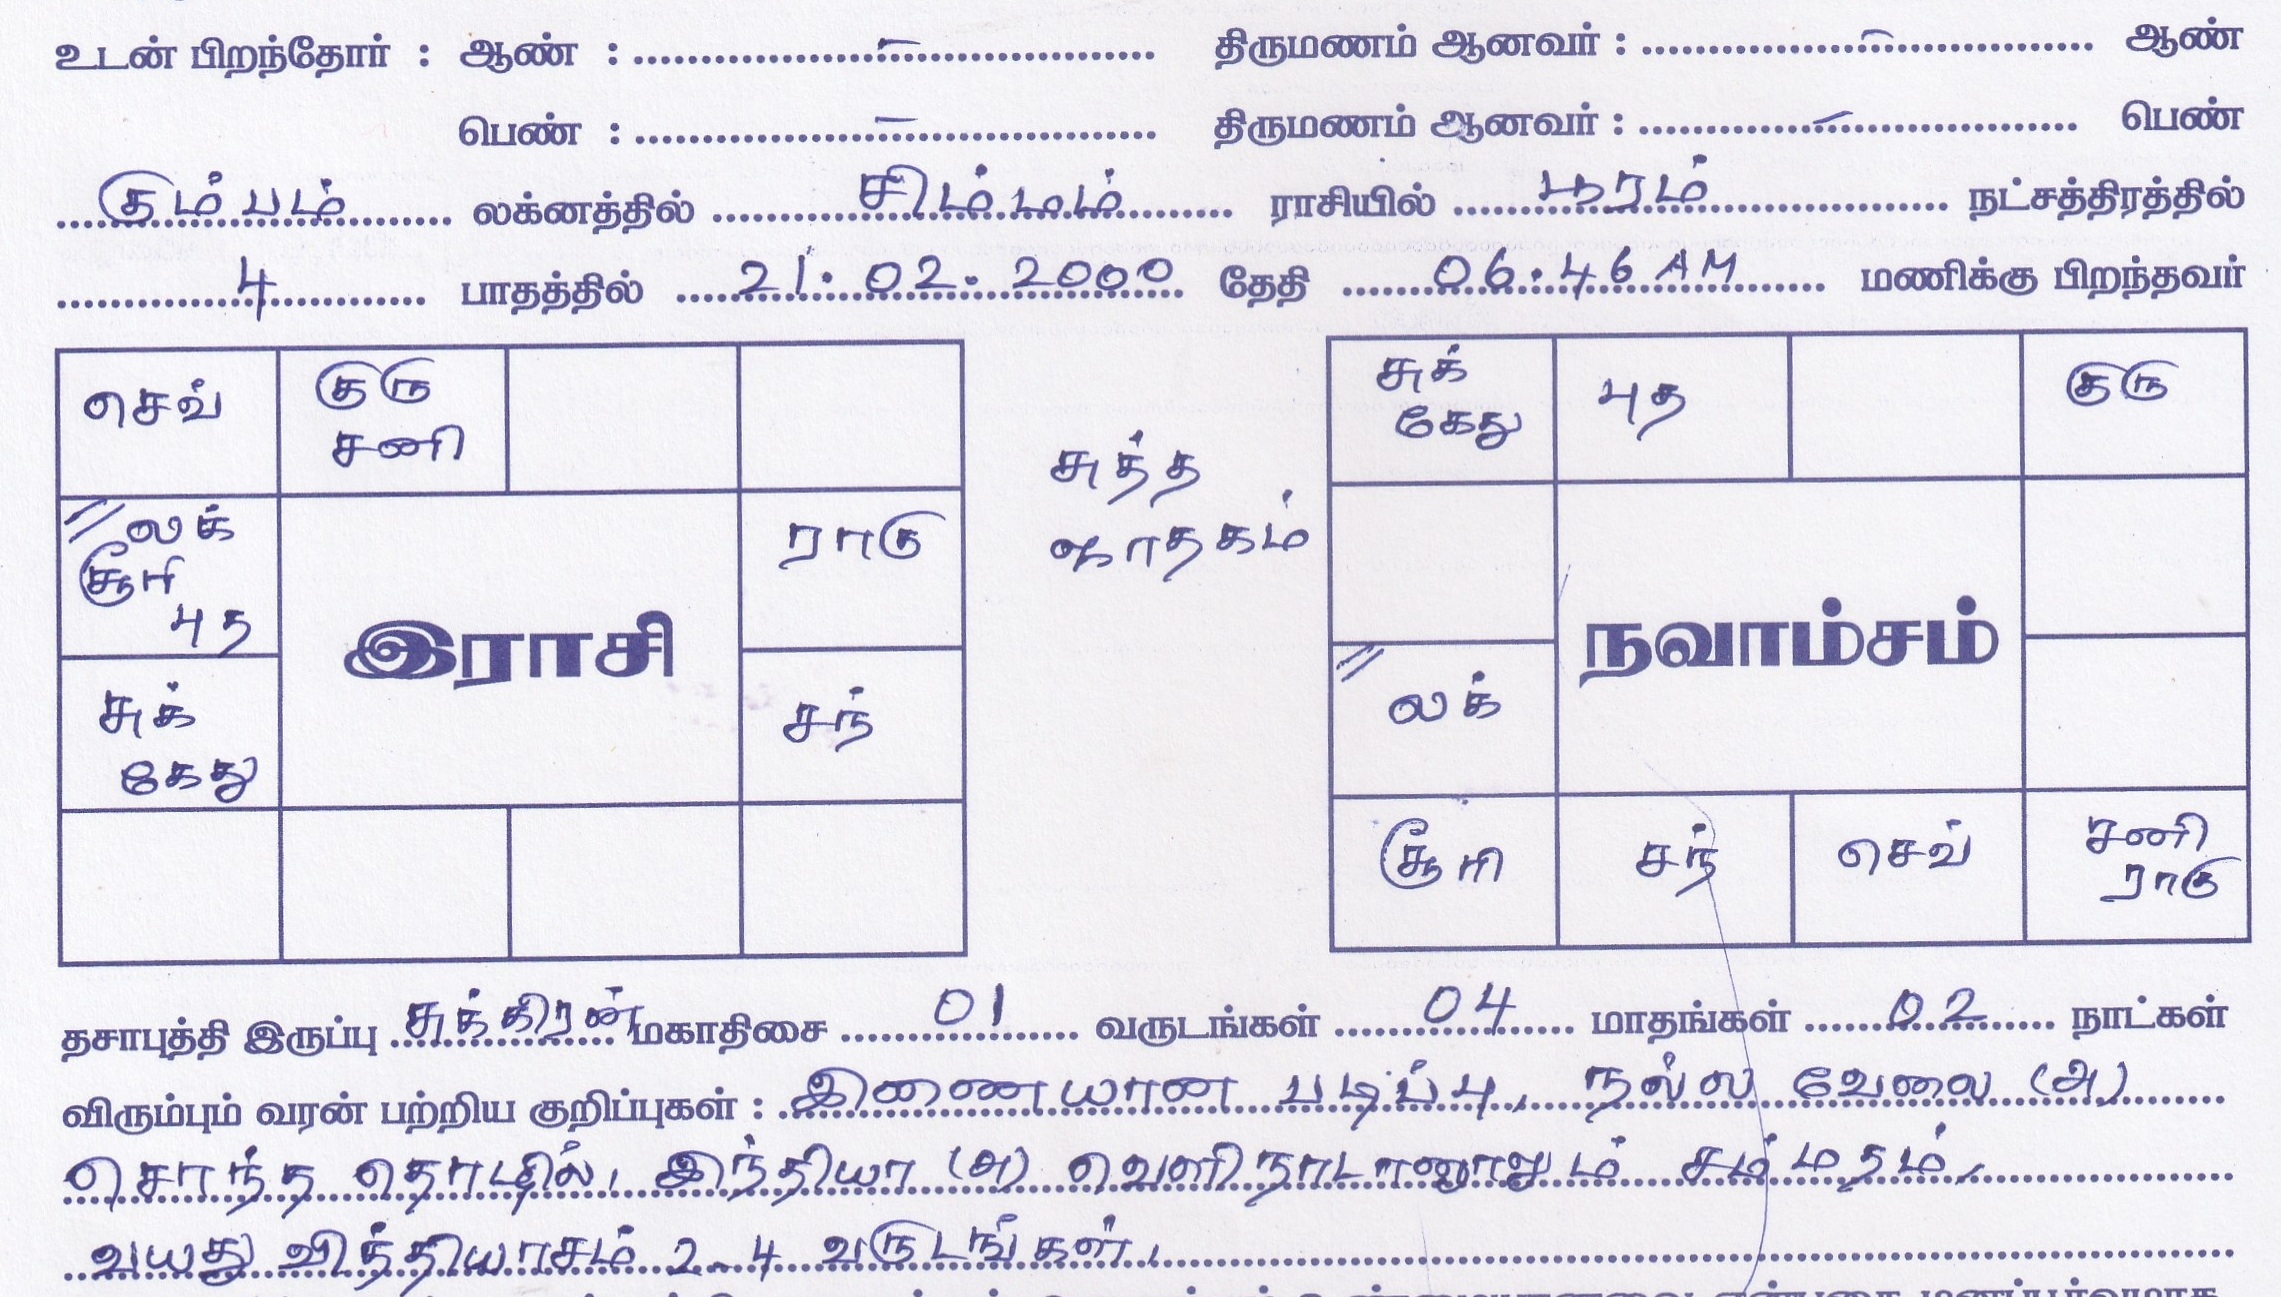 உடன் பிறந்தோர் : ஆண் : ........–........ திருமணம் ஆனவர் : ........–........ ஆண்
பெண் : ........–........ திருமணம் ஆனவர் : ........–........ பெண்
கும்பம் லக்னத்தில் சிம்மம் ராசியில் பூரம் நட்சத்திரத்தில்
4 பாதத்தில் 21.02.2000 தேதி 06.46 AM மணிக்கு பிறந்தவர்
செவ்
குரு
சனி
லக்
சூரி
புத
ராகு
சுக்
கேது
சந்
இராசி
சுத்த
ஜாதகம்
சுக்
கேது
புத
குரு
லக்
நவாம்சம்
சூரி
சந்
செவ்
சனி
ராகு
தசாபுத்தி இருப்பு சுக்கிரன் மகாதிசை 01 வருடங்கள் 04 மாதங்கள் 02 நாட்கள்
விரும்பும் வரன் பற்றிய குறிப்புகள் : இணையான படிப்பு, நல்ல வேலை (அ)
சொந்த தொழில், இந்தியா (அ) வெளிநாடானாலும் சம்மதம்,
வயது வித்தியாசம் 2-4 வருடங்கள்,